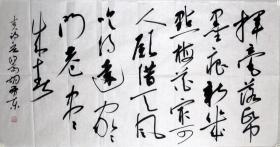 挥毫落纸
墨痕新几
点梅花最可
人愿借天风
吹得远家々
门巷尽
成春